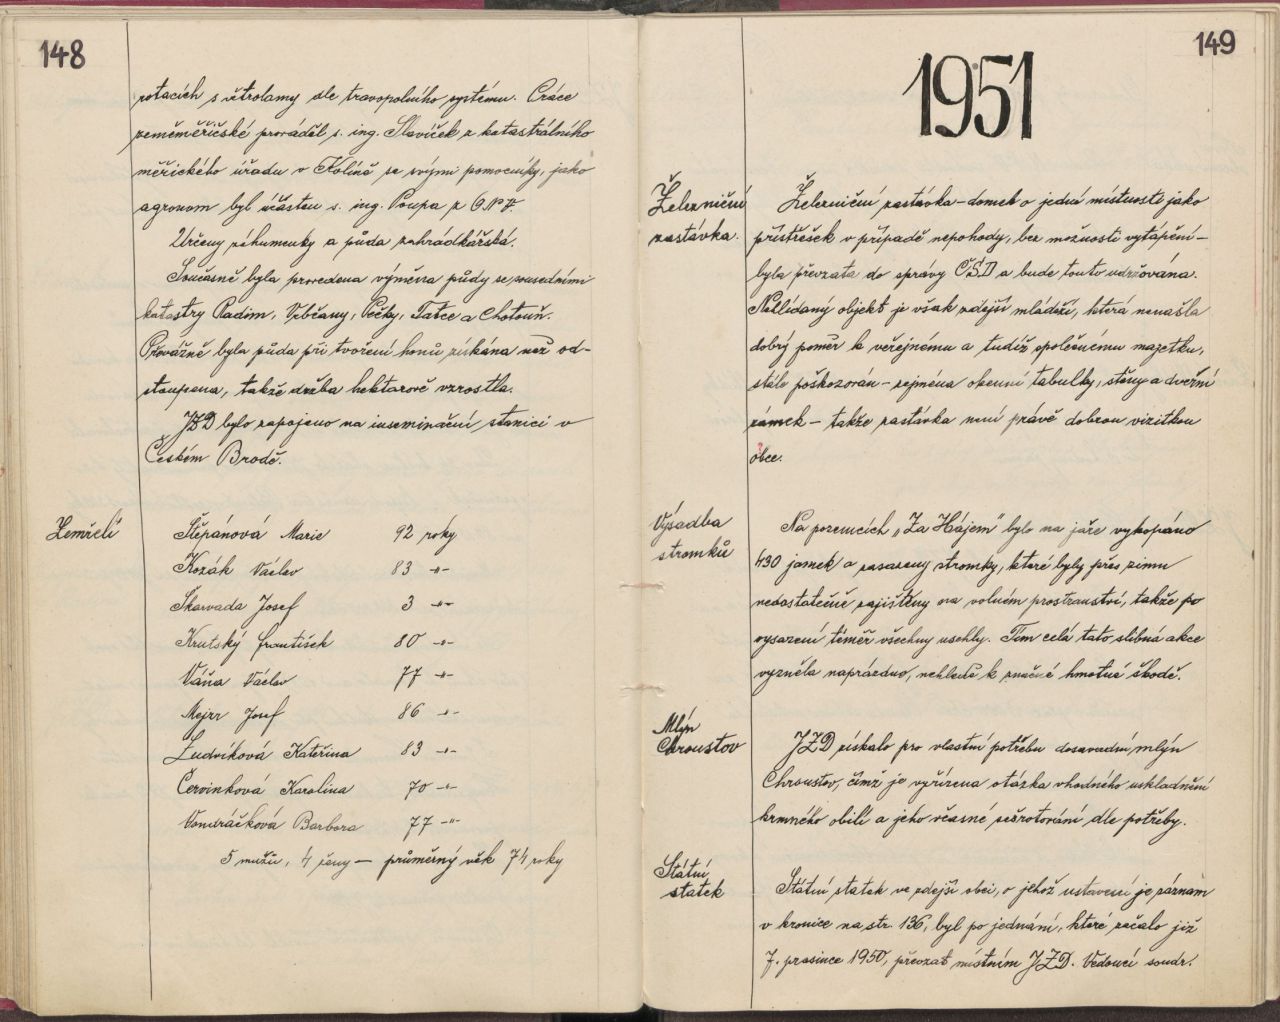 148
rotacích s větrolamy dle travopolního systému. Práce
zeměměřičské prováděl s. ing. Slavíček z katastrálního
měřického úřadu v Kolíně se svými pomocníky, jako
agronom byl účasten s. ing. Poupa z ONV.
Určeny záhumenky a půda zahrádkářská.
Současně byla provedena výměna půdy se sousedními
katastry Radim, Vrbčany, Pečky, Tatce a Chotouň.
Převážně byla půda při tvoření honů získána než od-
stoupena, takže držba hektarově vzrostla.
JZD bylo zapojeno na inseminační stanici v
Českém Brodě.
Zemřelí
Štěpánová Marie 92 roky
Kozák Václav 83 -"-
Skarvada Josef 3 -"-
Krutský František 80 -"-
Váňa Václav 77 -"-
Mejzr Josef 86 -"-
Ludvíková Kateřina 83 -"-
Červinková Karolina 70 -"-
Vondráčková Barbora 77 -"-
5 mužů, 4 ženy – průměrný věk 74 roky
149
1951
Železniční
zastávka.
Železniční zastávka – domek o jedné místnosti jako
přístřešek v případě nepohody, bez možnosti vytápění –
byla převzata do správy ČSD a bude touto udržována.
Nehlídaný objekt je však zdejší mládeží, která nenašla
dobrý poměr k veřejnému a tudíž společnému majetku,
stále poškozován – zejména okenní tabulky, stěny a dveřní
zámek – takže zastávka není právě dobrou vizitkou
obce.
Výsadba
stromků
Na pozemcích „Za Hájem" bylo na jaře vykopáno
430 jamek a zasazeny stromky, které byly přes zimu
nedostatečně zajištěny na volném prostranství, takže po
vysazení téměř všechny uschly. Tím celá tato slibná akce
vyzněla naprázdno, nehledě k značné hmotné škodě.
Mlýn
Chroustov
JZD získalo pro vlastní potřebu dosavadní mlýn
Chroustov, čímž je vyřízena otázka vhodného uskladnění
krmného obilí a jeho včasné sešrotování dle potřeby.
Státní
statek
Státní statek ve zdejší obci, o jehož ustavení je záznam
v kronice na str. 136, byl po jednání, které začalo již
7. prosince 1950, převzat místním JZD. Vedoucí soudr.